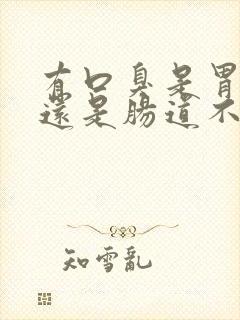 有口臭是胃
還是腸道不
知雪亂